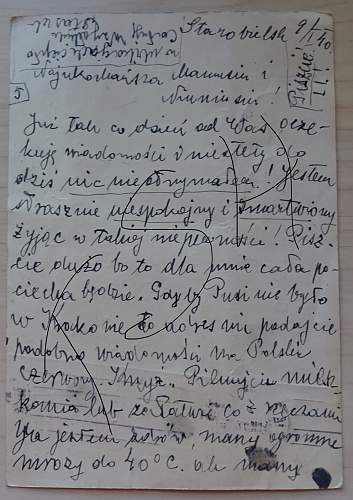 Starobielsk 9/I 40
Piszcie!
Najukochańsza Mamusiu i
Niuniusiu!
5
Już tak co dzień od Was ocze-
kuję wiadomości i niestety do
dziś nic nie otrzymałem! Jestem
strasznie niespokojny i zmartwiony
żyjąc w takiej niepewności! Pisz-
cie dużo bo to dla mnie cała po-
ciecha będzie. Gdyby Pusi nie było
w to adres mi podajcie
podobno wiadomości ma Polski
Czerwony Krzyż. Pilnujcie miesz-
kania lub co z rzeczami
Ja jestem zdrów, mamy ogromne
mrozy do 40°C. ale mamy